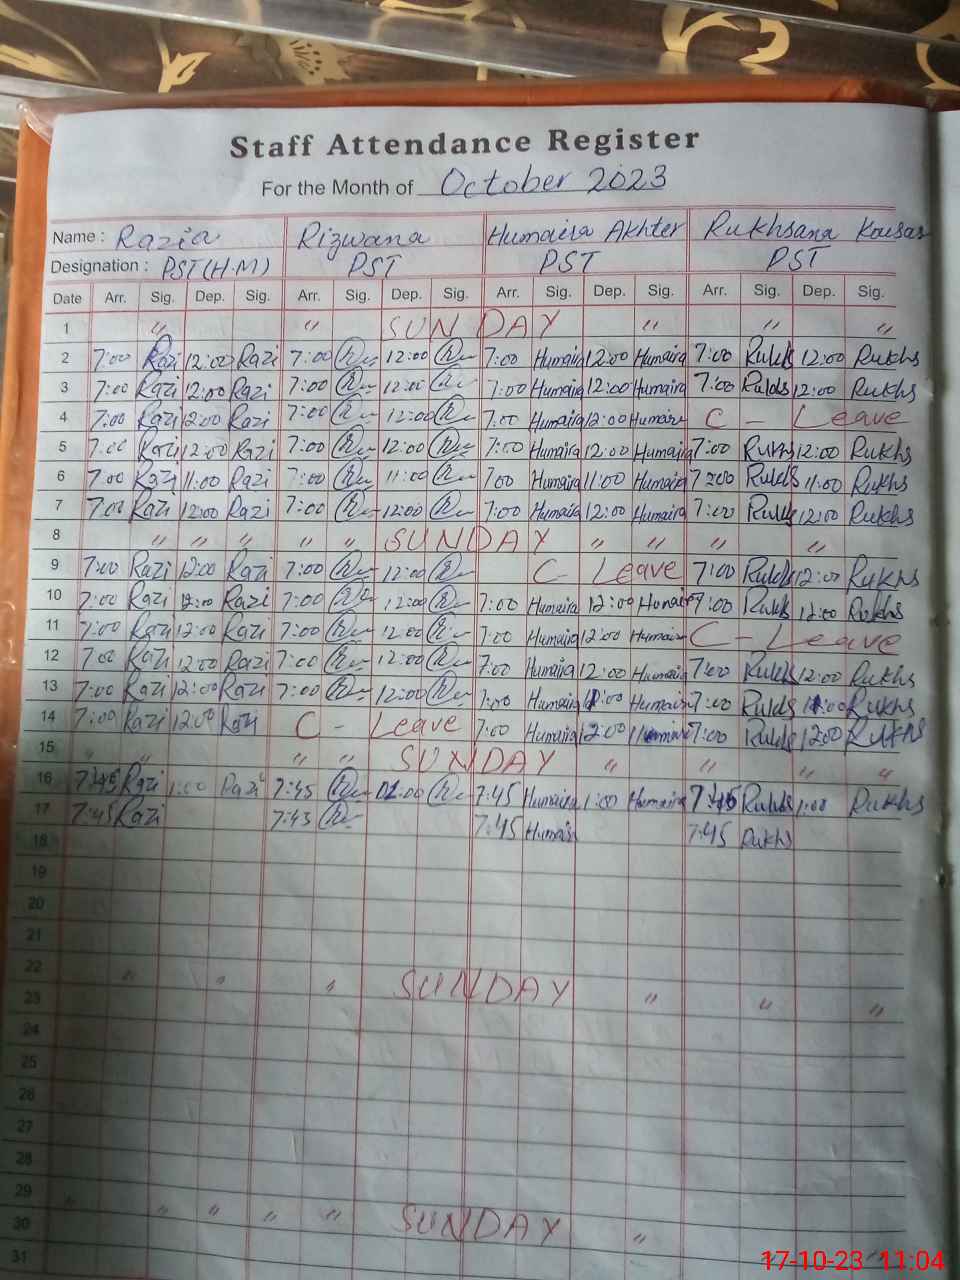 Staff Attendance Register
For the Month of October 2023
Name : Razia Rizwana Humaira Akhter Rukhsana Kousar
Designation : PST (H.M) PST PST PST
Date Arr. Sig. Dep. Sig. Arr. Sig. Dep. Sig. Arr. Sig. Dep. Sig. Arr. Sig. Dep. Sig.
1 " " SUNDAY " " "
2 7:00 Razi 12:00 Razi 7:00 12:00 7:00 Humaira 12:00 Humaira 7:00 Rukhs 12:00 Rukhs
3 7:00 Razi 12:00 Razi 7:00 12:00 7:00 Humaira 12:00 Humaira 7:00 Rukhs 12:00 Rukhs
4 7:00 Razi 12:00 Razi 7:00 12:00 7:00 Humaira 12:00 Humaira C - Leave
5 7:00 Razi 12:00 Razi 7:00 12:00 7:00 Humaira 12:00 Humaira 7:00 Rukhs 12:00 Rukhs
6 7:00 Razi 11:00 Razi 7:00 11:00 7:00 Humaira 11:00 Humaira 7:00 Rukhs 11:00 Rukhs
7 7:00 Razi 12:00 Razi 7:00 12:00 7:00 Humaira 12:00 Humaira 7:00 Rukhs 12:00 Rukhs
8 " " " " " SUNDAY " " " "
9 7:00 Razi 12:00 Razi 7:00 12:00 C - Leave 7:00 Rukhs 12:00 Rukhs
10 7:00 Razi 12:00 Razi 7:00 12:00 7:00 Humaira 12:00 Humaira 7:00 Rukhs 12:00 Rukhs
11 7:00 Razi 12:00 Razi 7:00 12:00 7:00 Humaira 12:00 Humaira C - Leave
12 7:00 Razi 12:00 Razi 7:00 12:00 7:00 Humaira 12:00 Humaira 7:00 Rukhs 12:00 Rukhs
13 7:00 Razi 12:00 Razi 7:00 12:00 7:00 Humaira Humaira 7:00 Rukhs Rukhs
14 7:00 Razi 12:00 Razi C - Leave 7:00 Humaira 12:00 Humaira 7:00 Rukhs 12:00 Rukhs
15 " " " " SUNDAY " " " "
16 7:45 Razi 1:00 Razi 7:45 01:00 7:45 Humaira 1:00 Humaira 7:45 Rukhs 1:00 Rukhs
17 7:45 Razi 7:45 7:45 Humair 7:45 Rukhs
18
19
20
21
22 " " " SUNDAY " " "
23
24
25
26
27
28
29 " " " " " SUNDAY "
30
31
17-10-23 11:04